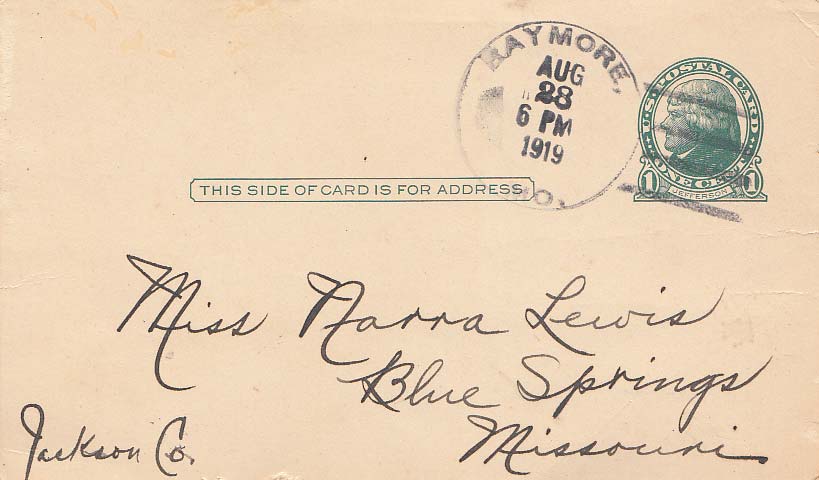 RAYMORE,
AUG
28
6 PM
1919
MO.
U.S. POSTAL CARD
ONE CENT
1 JEFFERSON 1
THIS SIDE OF CARD IS FOR ADDRESS
Miss Narra Lewis
Blue Springs
Missouri
Jackson Co.